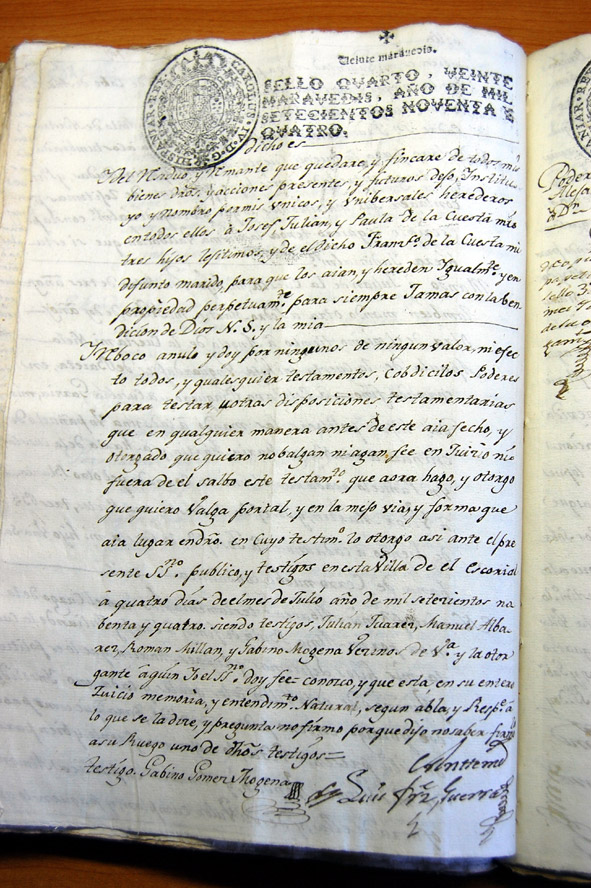 Veinte maravedis.
SELLO QVARTO, VEINTE
MARAVEDIS, AÑO DE MIL
SETECIENTOS NOVENTA Y
QVATRO.
CAROLUS IV D G HISPANIAR REX
dicho es
Y del Residuo, y Remanente que quedare, y fincare de todos mis
bienes dros, y acciones presentes, y futuros dejo, Institu-
yo y nombro por mis Vnicos, y Vnibersales herederos
en todos ellos à Josef, Julian, y Paula de la Cuesta mis
tres hijos lexitimos, y de el dicho Franco. de la Cuesta mi
defunto marido, para que los aian, y hereden Igualmte. y en
propiedad perpetuamte. para siempre Jamas con la ben
dicion de Dios N. S. y la mia
Reboco anulo y doy por ningunos de ningun valor, ni efec
to todos, y qualesquier testamentos, Cobdicilos Poderes
para testar, u otras disposiciones testamentarias
que en qualquier manera antes de este aia fecho, y
otorgado que quiero no balgan ni agan fee en Juicio ni
fuera de el salbo este testamto. que aora hago, y otorgo
que quiero Valga por tal, y en la mejor via, y forma que
aia lugar en dro. en Cuyo testimo. lo otorgo asi ante el pre
sente SSno. publico, y testigos en esta Villa de el Escorial
à quatro dias de el mes de Julio año de mil setecientos no
benta y quatro. siendo testigos, Julian Juarez, Manuel Alba-
rez, Roman Millan, y Gabino Mogena Vecinos de Va. y la otor
gante à quien Yo el SSno. doy fee conozco, y que està en su entero
Juicio memoria, y entendimto. Natural, segun abla, y Respe. à
lo que se la dice, y pregunta no firmo porque dijo no saber firmo
a su Ruego uno de dhos. testigos=
Ante mi
testigo. Gabino Gomez Mogena
Luis Frz Guerra
Poder